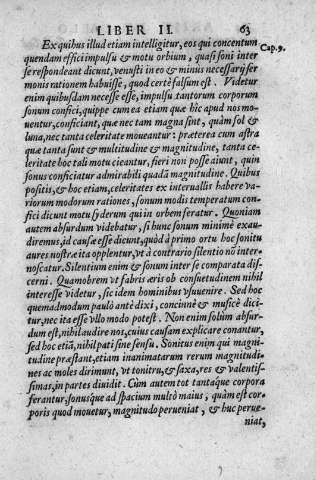 LIBER II. 63
Ex quibus illud etiam intelligitur, eos qui concentum Cap.9.
quendam effici impulsu & motu orbium, quasi soni inter
se respondeant dicunt, venusti in eo & minus necessarij ser
monis rationem habuisse, quod certè falsum est. Videtur
enim quibusdam necesse esse, impulsu tantorum corporum
sonum confici, quippe cum ea etiam quæ hîc apud nos mo
uentur, conficiant, quæ nec tam magna sint, quàm sol &
luna, nec tanta celeritate moueantur: præterea cum astra
quæ tanta sunt & multitudine & magnitudine, tanta ce
leritate hoc tali motu cieantur, fieri non posse aiunt, quin
sonus conficiatur admirabili quadā magnitudine. Quibus
positis, & hoc etiam, celeritates ex interuallis habere va-
riorum modorum rationes, sonum modis temperatum con-
fici dicunt motu syderum qui in orbem feratur. Quoniam
autem absurdum videbatur, si hunc sonum minimè exau-
diremus, id causæ esse dicunt, quòd à primo ortu hoc sonitu
aures nostræ ita opplentur, vt à contrario silentio nō inter
noscatur. Silentium enim & sonum inter se comparata dis
cerni. Quamobrem vt fabris æris ob consuetudinem nihil
interesse videtur, sic idem hominibus vsuuenire. Sed hoc
quemadmodum paulò antè dixi, concinnè & musicè dici-
tur, nec ita esse vllo modo potest. Non enim solùm absur-
dum est, nihil audire nos, cuius causam explicare conantur,
sed hoc etiā, nihil pati sine sensu. Sonitus enim qui magni-
tudine præstant, etiam inanimatarum rerum magnitudi-
nes ac moles dirimunt, vt tonitru, & saxa, res & valentis-
simas, in partes diuidit. Cùm autem tot tantaque corpora
ferantur, sonusque ad spacium multò maius, quàm est cor-
poris quod mouetur, magnitudo perueniat, & huc perue-
niat,